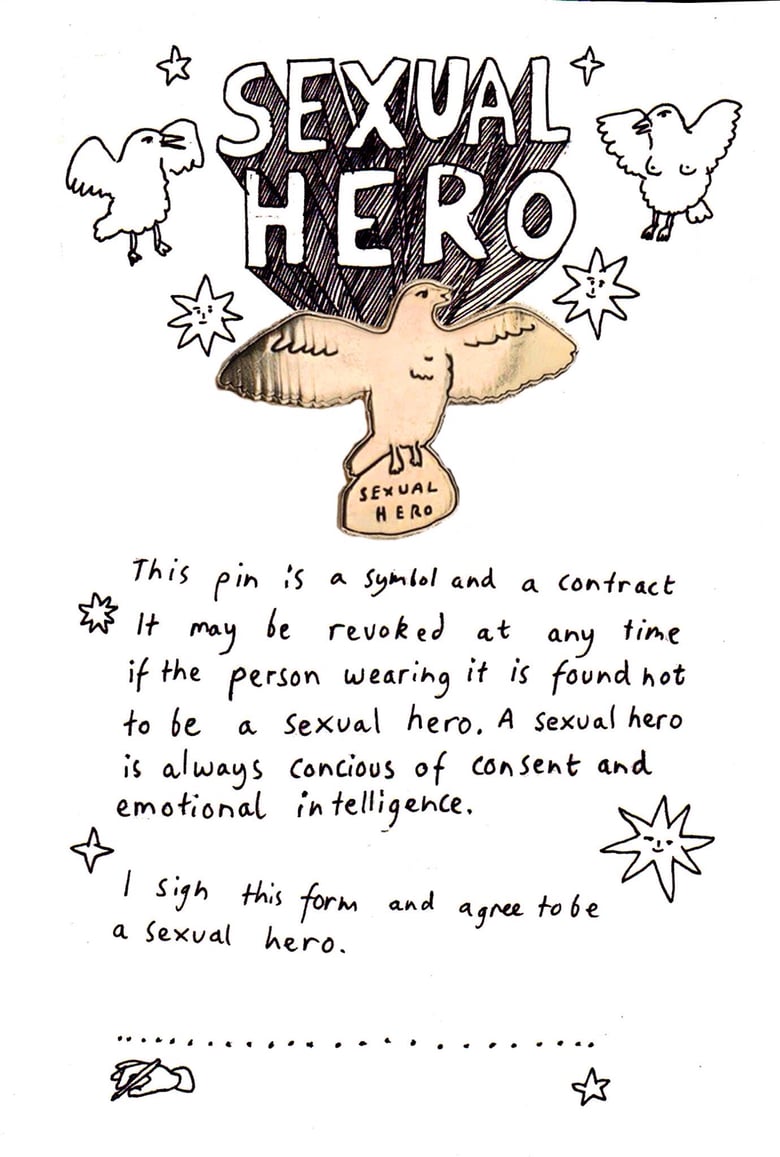 SEXUAL
HERO
SEXUAL
HERO
This pin is a symbol and a contract
It may be revoked at any time
if the person wearing it is found not
to be a sexual hero. A sexual hero
is always concious of consent and
emotional intelligence.
I sign this form and agree to be
a sexual hero.